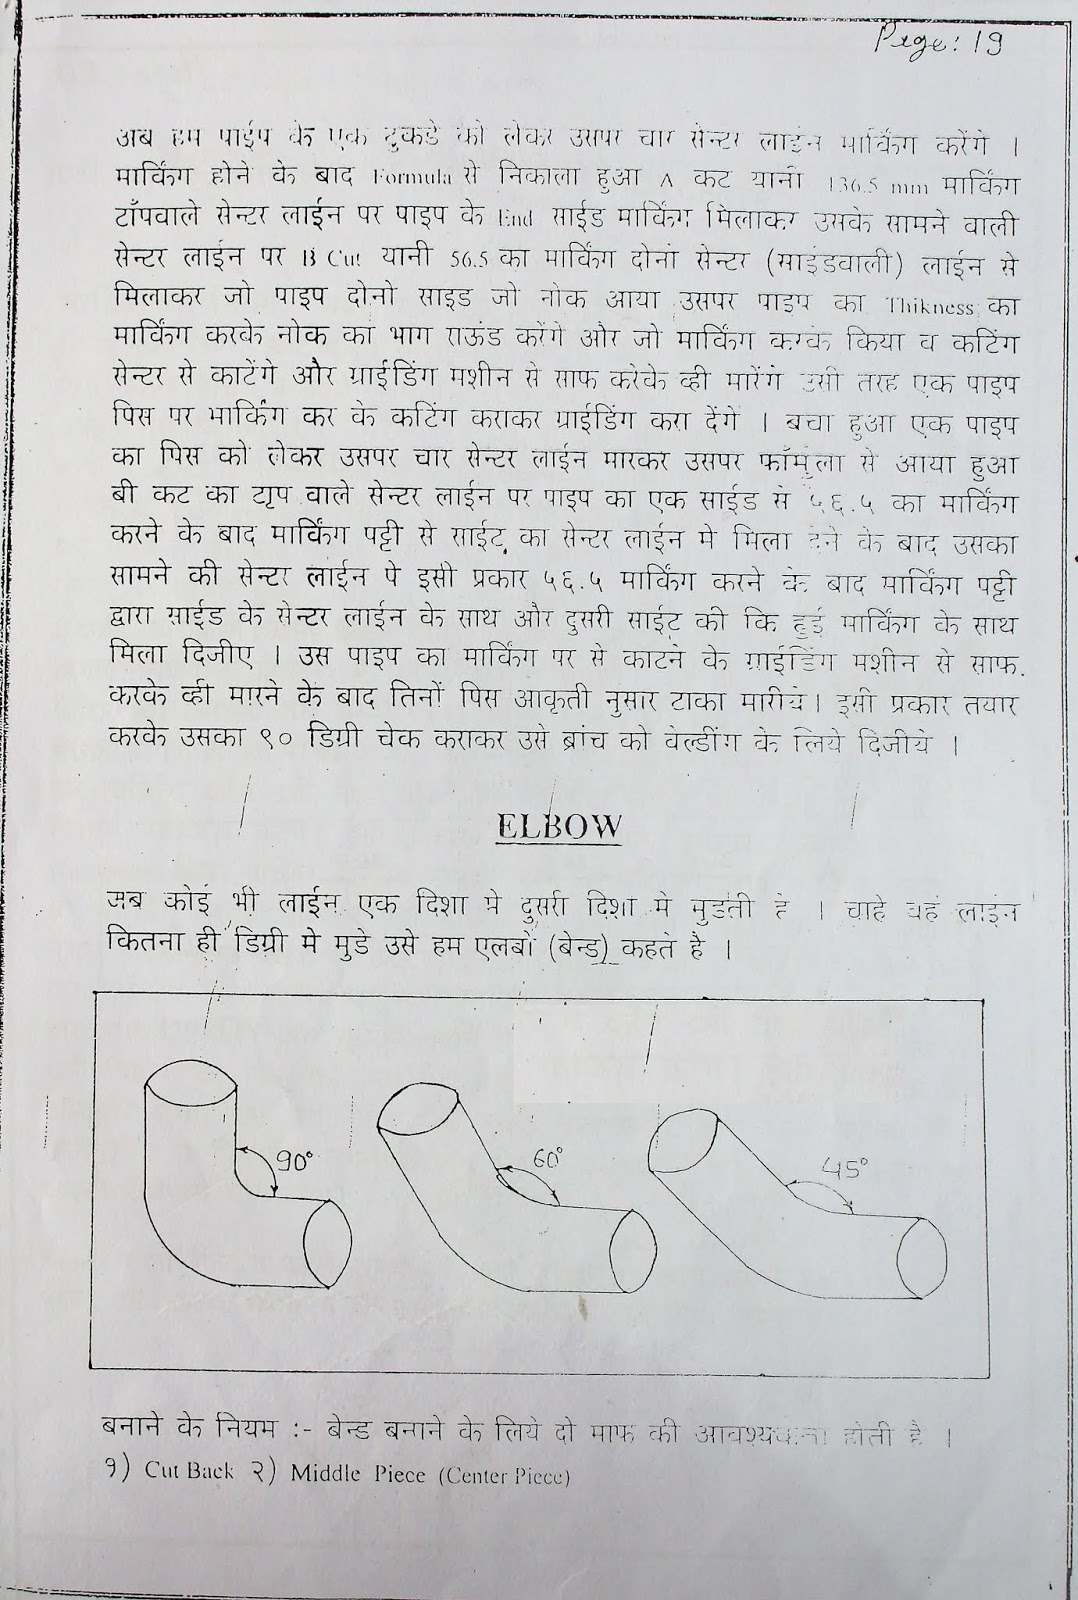 Page: 19
अब हम पाईप के एक टुकडे को लेकर उसपर चार सेन्टर लाईन मार्किंग करेंगे ।
मार्किंग होने के बाद Formula से निकाला हुआ A कट यानी 136.5 mm मार्किंग
टाँपवाले सेन्टर लाईन पर पाइप के End साईड मार्किंग मिलाकर उसके सामने वाली
सेन्टर लाईन पर B Cut यानी 56.5 का मार्किंग दोनो सेन्टर (साइंडवाली) लाईन से
मिलाकर जो पाइप दोनो साइड जो नोक आया उसपर पाइप का Thikness का
मार्किंग करके नोक का भाग राऊंड करेंगे और जो मार्किंग करके किया व कटिंग
सेन्टर से काटेंगे और ग्राईडिंग मशीन से साफ करेके व्ही मारेंगे उसी तरह एक पाइप
पिस पर मार्किंग कर के कटिंग कराकर ग्राईडिंग करा देंगें । बचा हुआ एक पाइप
का पिस को लेकर उसपर चार सेन्टर लाईन मारकर उसपर फॉर्मुला से आया हुआ
बी कट का टाप वाले सेन्टर लाईन पर पाइप का एक साईड से ५६.५ का मार्किंग
करने के बाद मार्किंग पट्टी से साईट का सेन्टर लाईन मे मिला देने के बाद उसका
सामने की सेन्टर लाईन पे इसी प्रकार ५६.५ मार्किंग करने के बाद मार्किंग पट्टी
द्वारा साईड के सेन्टर लाईन के साथ और दुसरी साईट की कि हुई मार्किंग के साथ
मिला दिजीए । उस पाइप का मार्किंग पर से काटने के ग्राईडिंग मशीन से साफ
करके व्ही मारने के बाद तिनों पिस आकृती नुसार टाका मारीये । इसी प्रकार तयार
करके उसका ९० डिग्री चेक कराकर उसे ब्रांच को वेल्डींग के लिये दिजीये ।
ELBOW
जब कोई भी लाईन एक दिशा मे दुसरी दिशा मे मुडती है । चाहे वह लाइन
कितना ही डिग्री मे मुडे उसे हम एलबो (बेन्ड) कहते है ।
90°
60°
45°
बनाने के नियम :- बेन्ड बनाने के लिये दो माफ की आवश्यकता होती है ।
१) Cut Back २) Middle Piece (Center Piece)